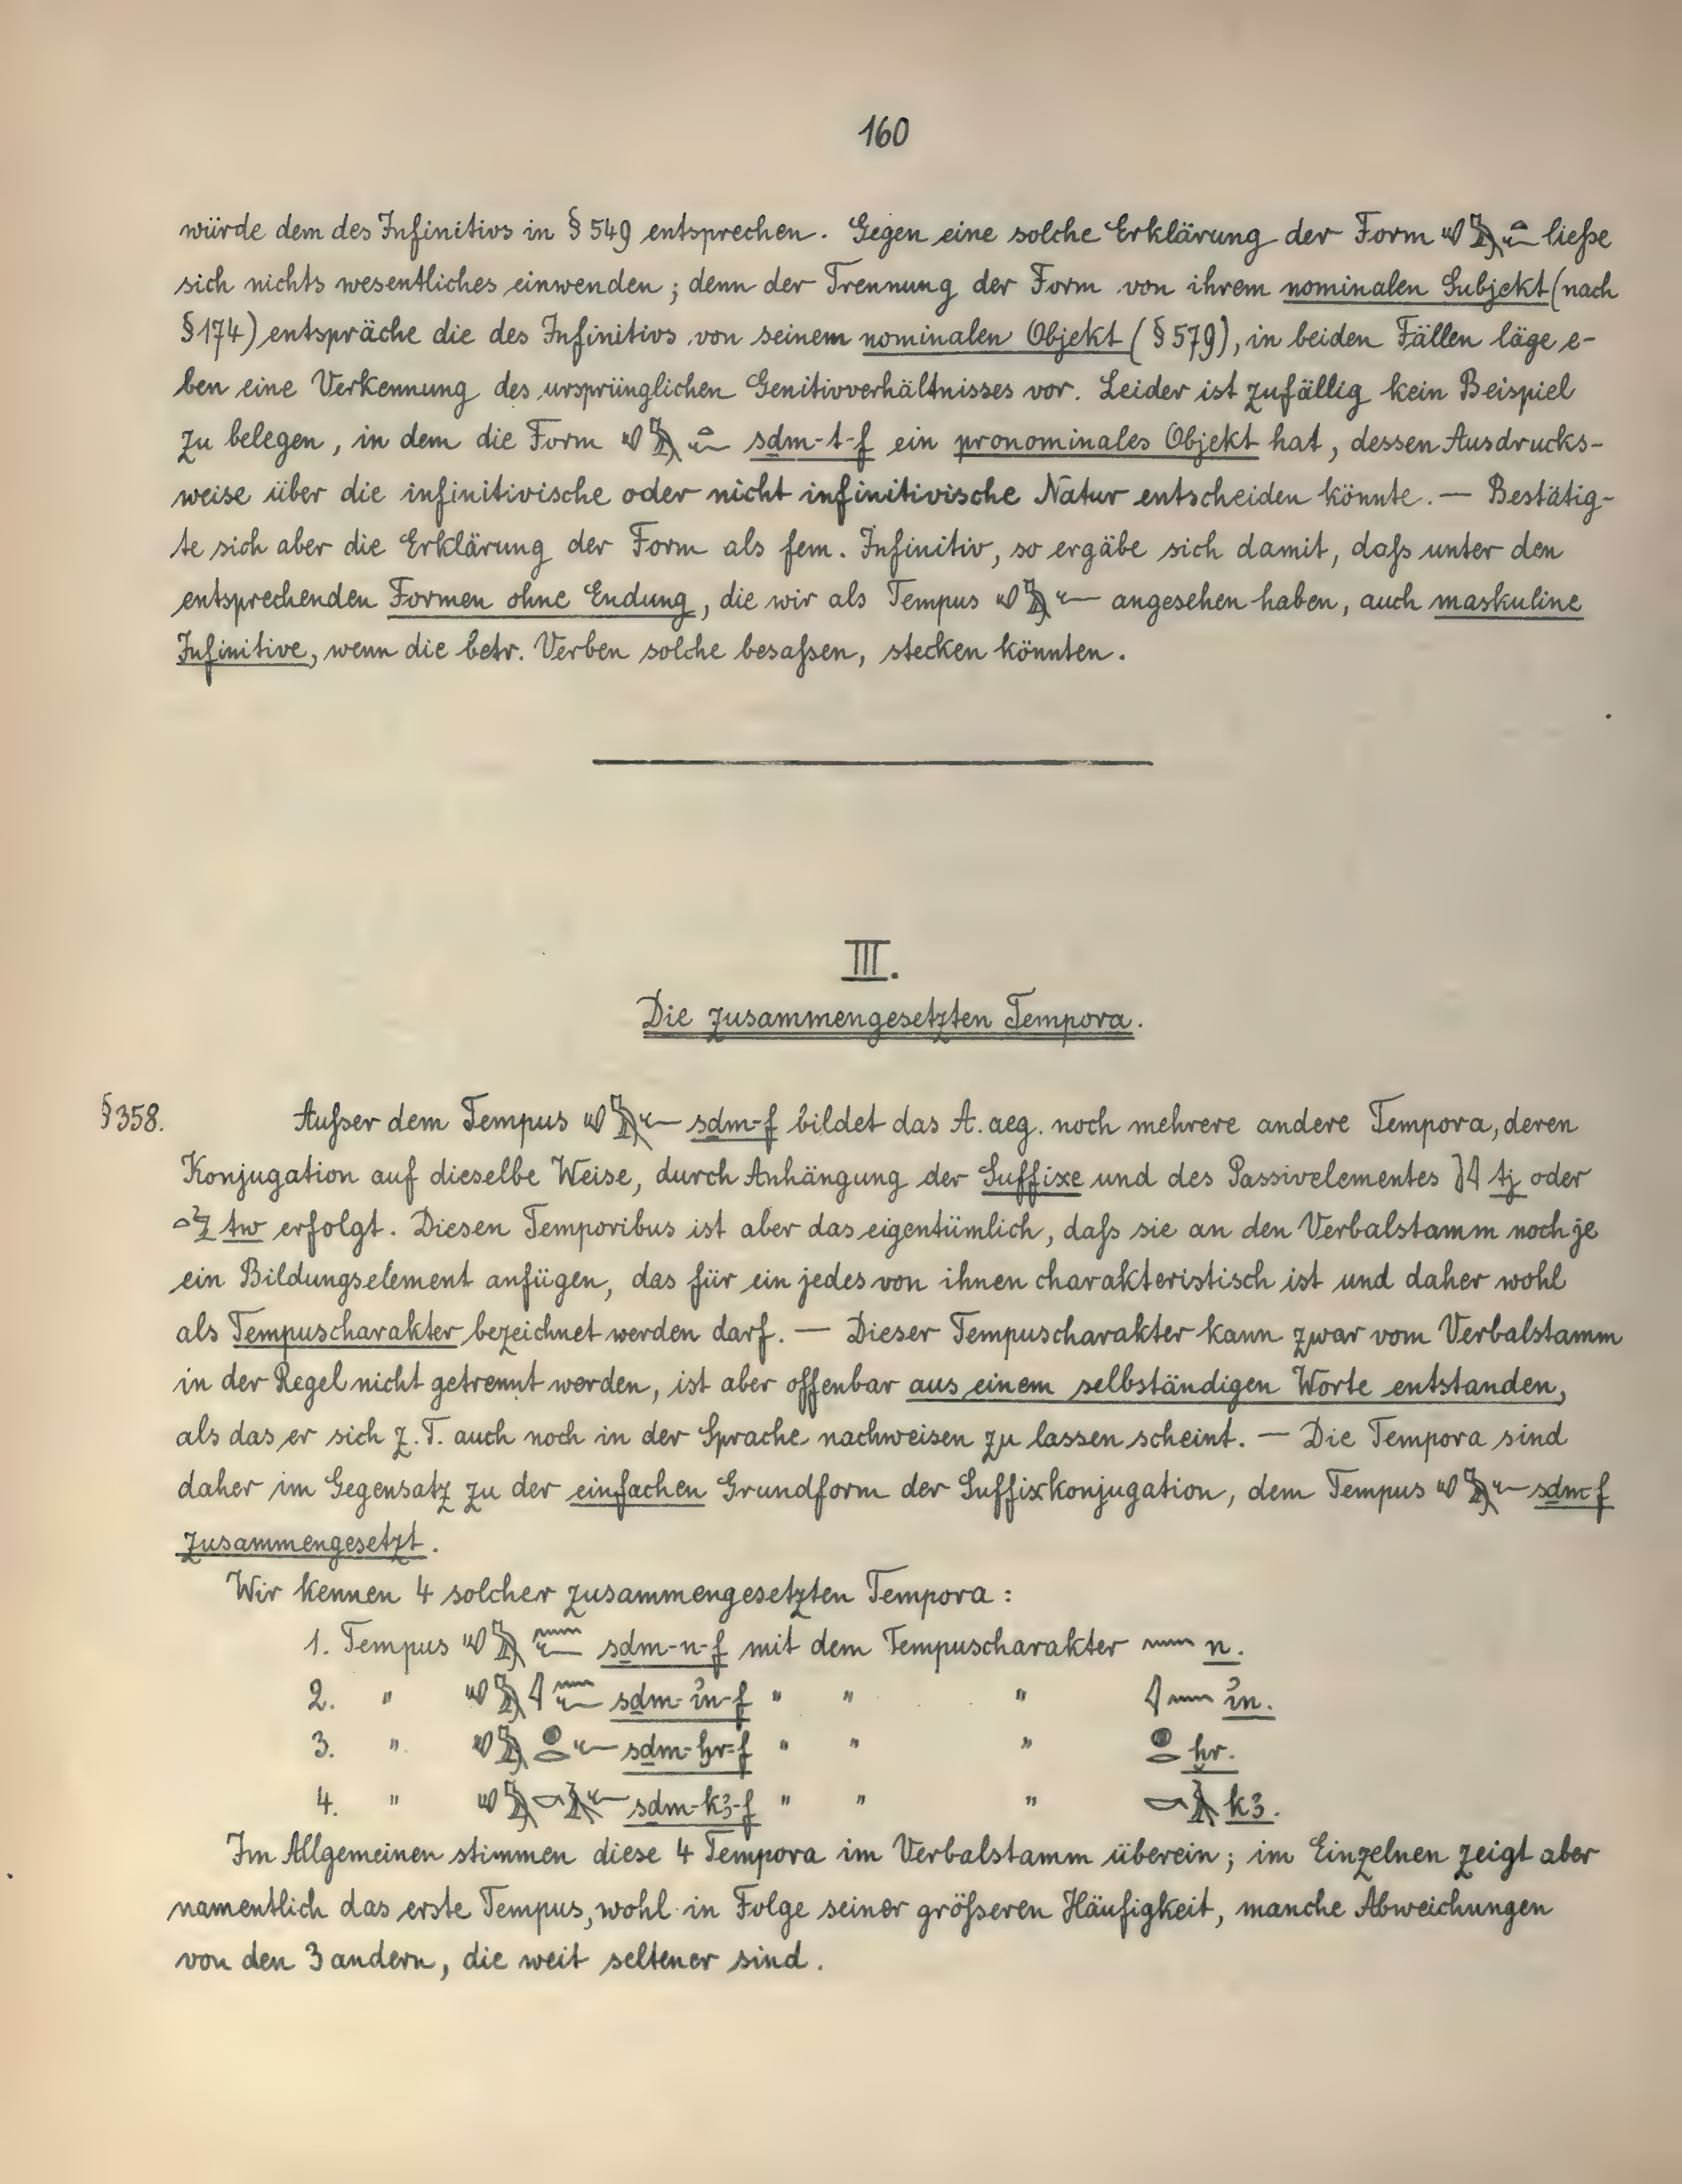 160
würde dem des Infinitivs in § 549 entsprechen. Gegen eine solche Erklärung der Form 𓄔𓅓𓏏𓆑 ließe
sich nichts wesentliches einwenden; denn der Trennung der Form von ihrem nominalen Subjekt (nach
§ 174) entspräche die des Infinitivs von seinem nominalen Objekt (§ 579), in beiden Fällen läge e-
ben eine Verkennung des ursprünglichen Genitivverhältnisses vor. Leider ist zufällig kein Beispiel
zu belegen, in dem die Form 𓄔𓅓𓏏𓆑 sḏm-t-f ein pronominales Objekt hat, dessen Ausdrucks-
weise über die infinitivische oder nicht infinitivische Natur entscheiden könnte. — Bestätig-
te sich aber die Erklärung der Form als fem. Infinitiv, so ergäbe sich damit, daß unter den
entsprechenden Formen ohne Endung, die wir als Tempus 𓄔𓅓𓆑 angesehen haben, auch maskuline
Infinitive, wenn die betr. Verben solche besaßen, stecken könnten.
III.
Die zusammengesetzten Tempora.
§ 358. Außer dem Tempus 𓄔𓅓𓆑 sḏm-f bildet das A. aeg. noch mehrere andere Tempora, deren
Konjugation auf dieselbe Weise, durch Anhängung der Suffixe und des Passivelementes 𓍘𓇋 tj oder
𓏏𓅱 tw erfolgt. Diesen Temporibus ist aber das eigentümlich, daß sie an den Verbalstamm noch je
ein Bildungselement anfügen, das für ein jedes von ihnen charakteristisch ist und daher wohl
als Tempuscharakter bezeichnet werden darf. — Dieser Tempuscharakter kann zwar vom Verbalstamm
in der Regel nicht getrennt werden, ist aber offenbar aus einem selbständigen Worte entstanden,
als das er sich z. T. auch noch in der Sprache nachweisen zu lassen scheint. — Die Tempora sind
daher im Gegensatz zu der einfachen Grundform der Suffixkonjugation, dem Tempus 𓄔𓅓𓆑 sḏm-f
zusammengesetzt.
Wir kennen 4 solcher zusammengesetzten Tempora:
1. Tempus 𓄔𓅓𓈖𓆑 sḏm-n-f mit dem Tempuscharakter 𓈖 n.
2. " 𓄔𓅓𓇋𓈖𓆑 sḏm-ỉn-f " " " 𓇋𓈖 ỉn.
3. " 𓄔𓅓𓐍𓂋𓆑 sḏm-ḫr-f " " " 𓐍𓂋 ḫr.
4. " 𓄔𓅓𓎡𓄿𓆑 sḏm-kꜣ-f " " " 𓎡𓄿 kꜣ.
Im Allgemeinen stimmen diese 4 Tempora im Verbalstamm überein; im Einzelnen zeigt aber
namentlich das erste Tempus, wohl in Folge seiner größeren Häufigkeit, manche Abweichungen
von den 3 andern, die weit seltener sind.